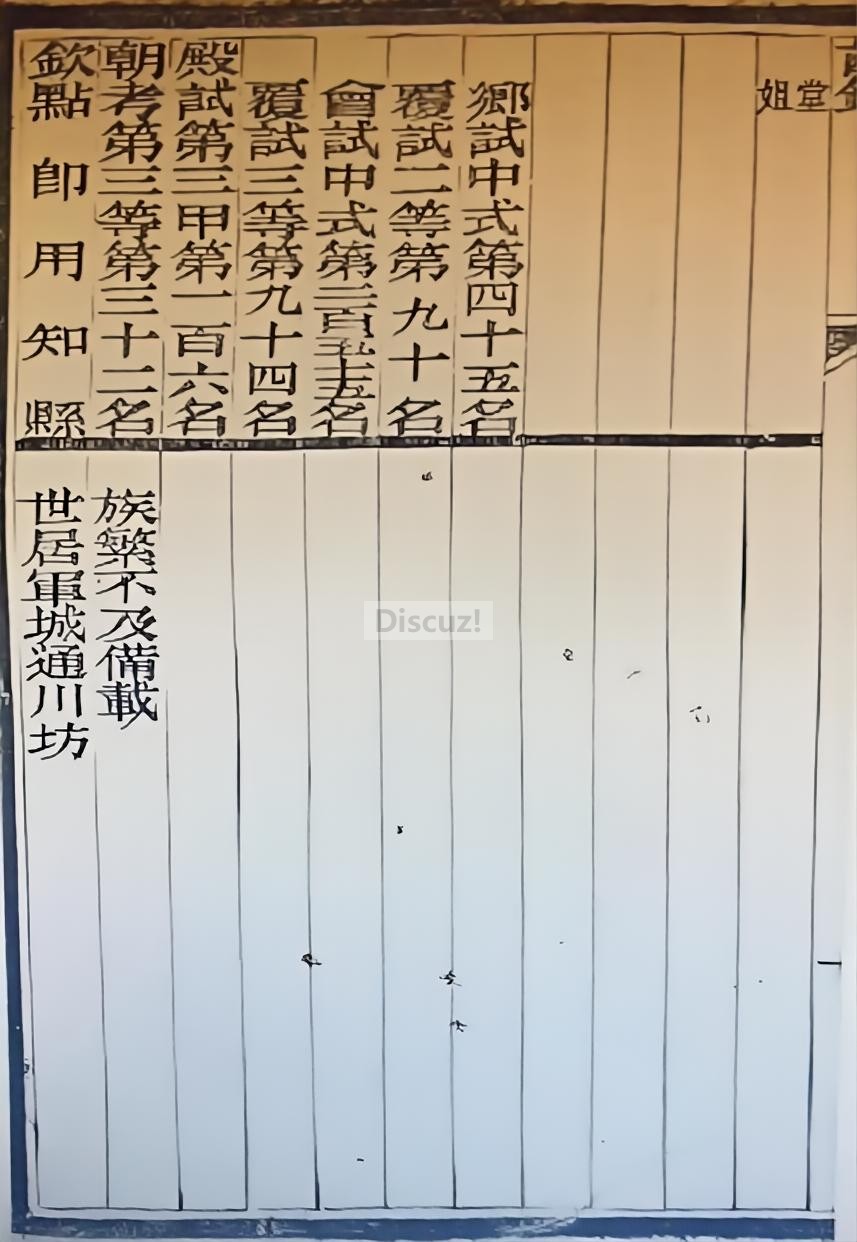 堂姐
鄉試中式第四十五名
覆試二等第九十名
會試中式第百五十名
覆試三等第九十四名
殿試第三甲第一百六名
朝考第三等第三十二名
欽點卽用知縣
族繁不及備載
世居軍城通川坊
Discuz!